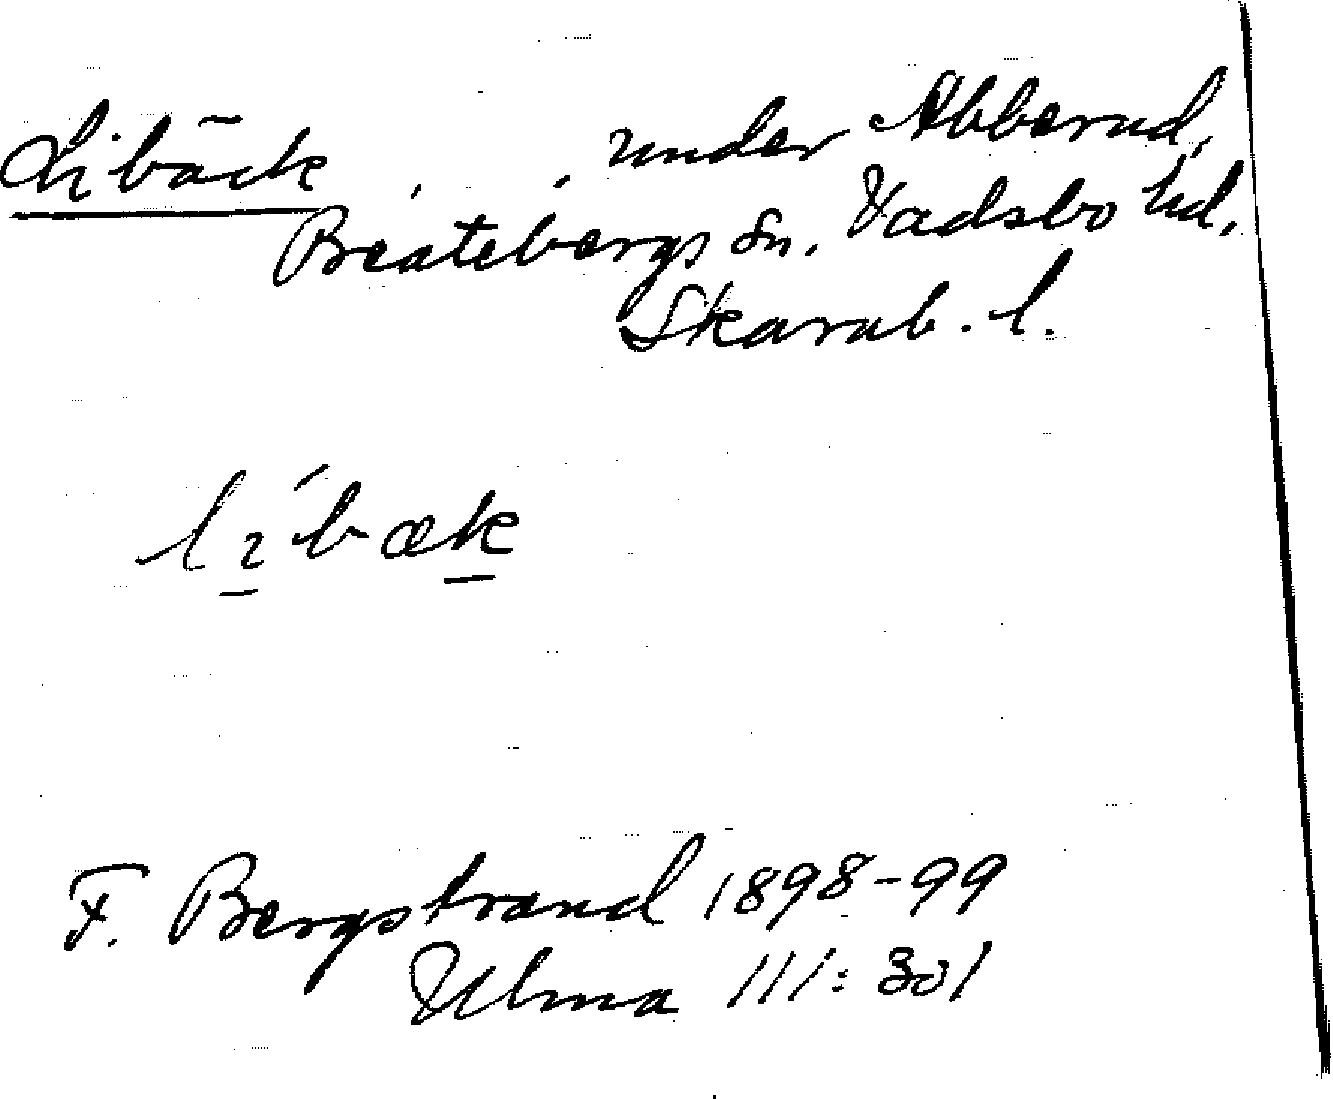 Libäck, under Abberud,
Beatebergs Sn. Vadsbo hd.
Skarab. l.
lìbæk
F. Bergstrand 1898-99
Ulma 111:301